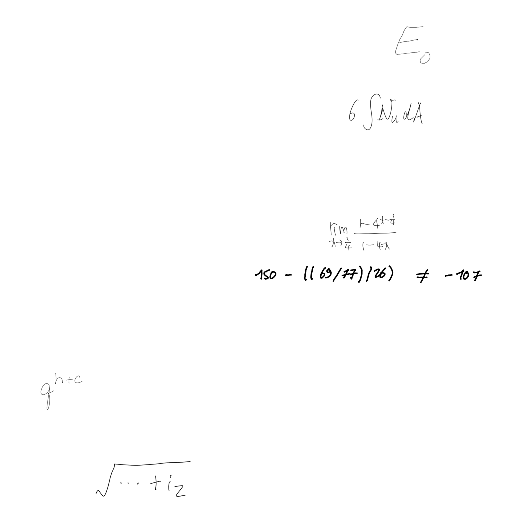 E_0
6 ∫ N_u dA
lim_{x→1/4} (1-4^{x-1/4})/(1-4x)
150 - ((69/77)/26) ≠ -107
√(⋯+i_2)